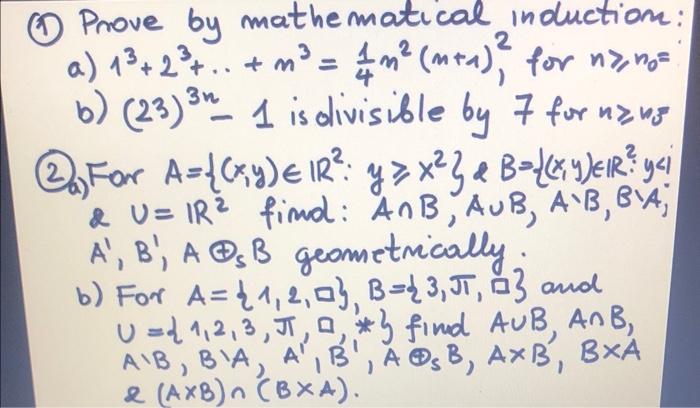 ① Prove by mathematical induction:
a) 1³ + 2³ + .. + n³ = 1/4 n² (n+1)², for n ≥ n₀ =
b) (23)³ⁿ - 1 is divisible by 7 for n ≥ n₀
② a) For A = {(x,y) ∈ IR²: y ≥ x²} & B = {(x,y) ∈ IR²: y<1
& U = IR² find: A∩B, A∪B, A\B, B\A,
A', B', A ⊕ₛ B geometrically.
b) For A = {1, 2, □}, B = {3, π, □} and
U = {1, 2, 3, π, □, *} find A∪B, A∩B,
A\B, B\A, A', B', A ⊕ₛ B, A×B, B×A
& (A×B) ∩ (B×A).